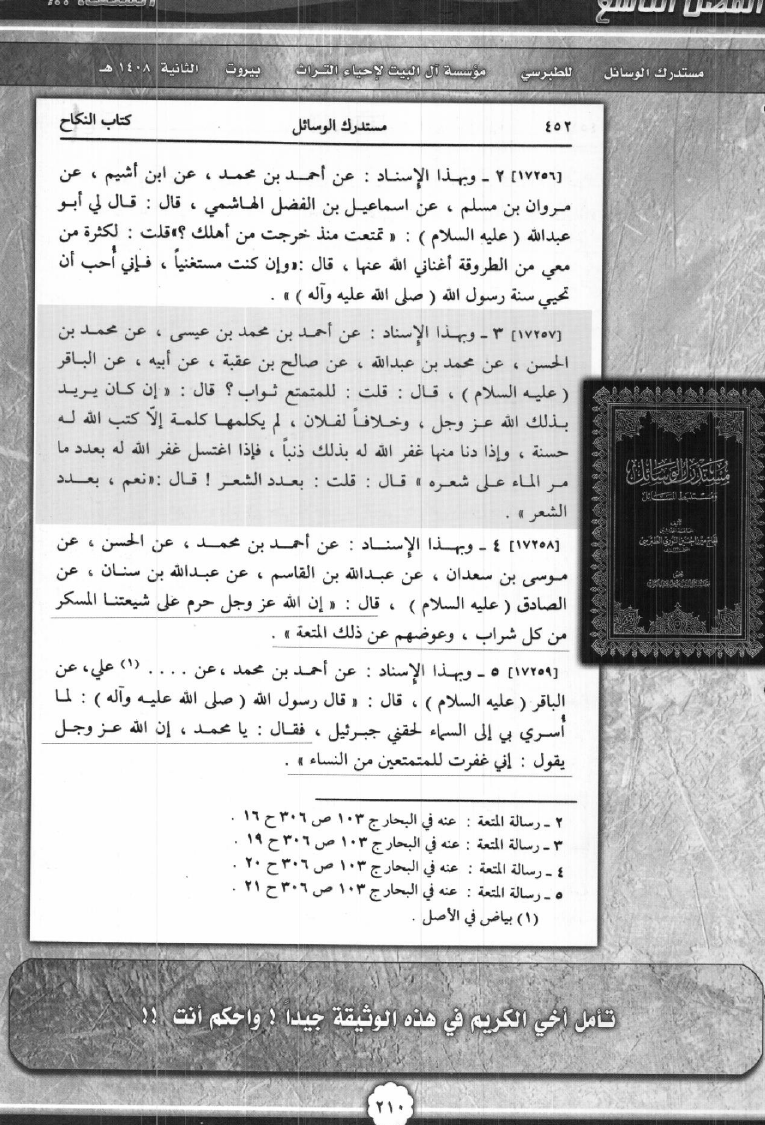 الفصل التاسع
مستدرك الوسائل للطبرسي مؤسسة آل البيت لإحياء التراث بيروت الثانية ١٤٠٨ هـ
٤٥٢ مستدرك الوسائل كتاب النكاح
[١٧٢٥٦] ٢ ـ وبهذا الإسناد : عن أحمد بن محمد ، عن ابن أشيم ، عن
مروان بن مسلم ، عن اسماعيل بن الفضل الهاشمي ، قال : قال لي أبو
عبدالله ( عليه السلام ) : « تمتعت منذ خرجت من أهلك ؟» قلت : لكثرة من
معي من الطروقة أغناني الله عنها ، قال :«وإن كنت مستغنياً ، فإني أحب أن
تحيي سنة رسول الله ( صلى الله عليه وآله ) » .
[١٧٢٥٧] ٣ ـ وبهذا الإسناد : عن أحمد بن محمد بن عيسى ، عن محمد بن
الحسن ، عن محمد بن عبدالله ، عن صالح بن عقبة ، عن أبيه ، عن الباقر
( عليه السلام ) ، قال : قلت : للمتمتع ثواب ؟ قال : « إن كان يريد
بذلك الله عز وجل ، وخلافاً لفلان ، لم يكلمها كلمة إلّا كتب الله له
حسنة ، وإذا دنا منها غفر الله له بذلك ذنباً ، فإذا اغتسل غفر الله له بعدد ما
مر الماء على شعره » قال : قلت : بعدد الشعر ! قال :«نعم ، بعدد
الشعر » .
[١٧٢٥٨] ٤ ـ وبهذا الإسناد : عن أحمد بن محمد ، عن الحسن ، عن
موسى بن سعدان ، عن عبدالله بن القاسم ، عن عبدالله بن سنان ، عن
الصادق ( عليه السلام ) ، قال : « إن الله عز وجل حرم على شيعتنا المسكر
من كل شراب ، وعوضهم عن ذلك المتعة » .
[١٧٢٥٩] ٥ ـ وبهذا الإسناد : عن أحمد بن محمد ،عن . . . . (١) علي، عن
الباقر ( عليه السلام ) ، قال : « قال رسول الله ( صلى الله عليه وآله ) : لما
أُسري بي إلى السماء لحقني جبرئيل ، فقال : يا محمد ، إن الله عز وجل
يقول : إني غفرت للمتمتعين من النساء » .
٢ ـ رسالة المتعة : عنه في البحار ج ١٠٣ ص ٣٠٦ ح ١٦ .
٣ ـ رسالة المتعة : عنه في البحار ج ١٠٣ ص ٣٠٦ ح ١٩ .
٤ ـ رسالة المتعة : عنه في البحار ج ١٠٣ ص ٣٠٦ ح ٢٠ .
٥ ـ رسالة المتعة : عنه في البحار ج ١٠٣ ص ٣٠٦ ح ٢١ .
(١) بياض في الأصل .
مستدرك الوسائل
تأمل أخي الكريم في هذه الوثيقة جيداً ! واحكم أنت !!
٢١٠